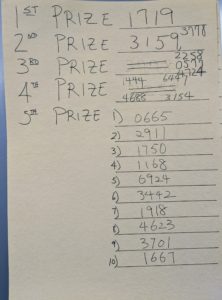 1ST PRIZE 1719
2ND PRIZE 3159 3778
3RD PRIZE 2258
0577
4TH PRIZE 1444
4688 3154
5TH PRIZE 1) 0665
2) 2911
3) 1750
4) 1168
5) 6924
6) 3442
7) 1918
8) 4623
9) 3701
10) 1667